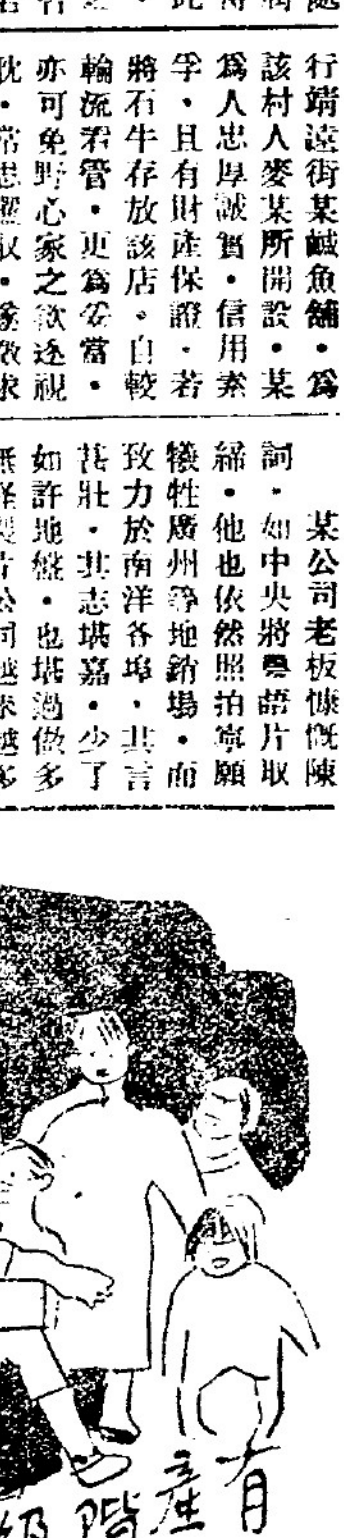 行靖遠街某鹹魚舖・為
該村人麥某所開設・某
為人忠厚誠實・信用素
孚・且有財產保證・若
將石牛存放該店・自較
輪流看管・更為妥當・
亦可免野心家之欲逐視
某公司老板慷慨陳
詞・如中央將粵語片取
締・他也依然照拍寧願
犧牲廣州等地銷場・而
致力於南洋各埠・其言
甚壯・其志堪嘉・少了
如許地盤・也堪過做多
司越來越多
有產階級